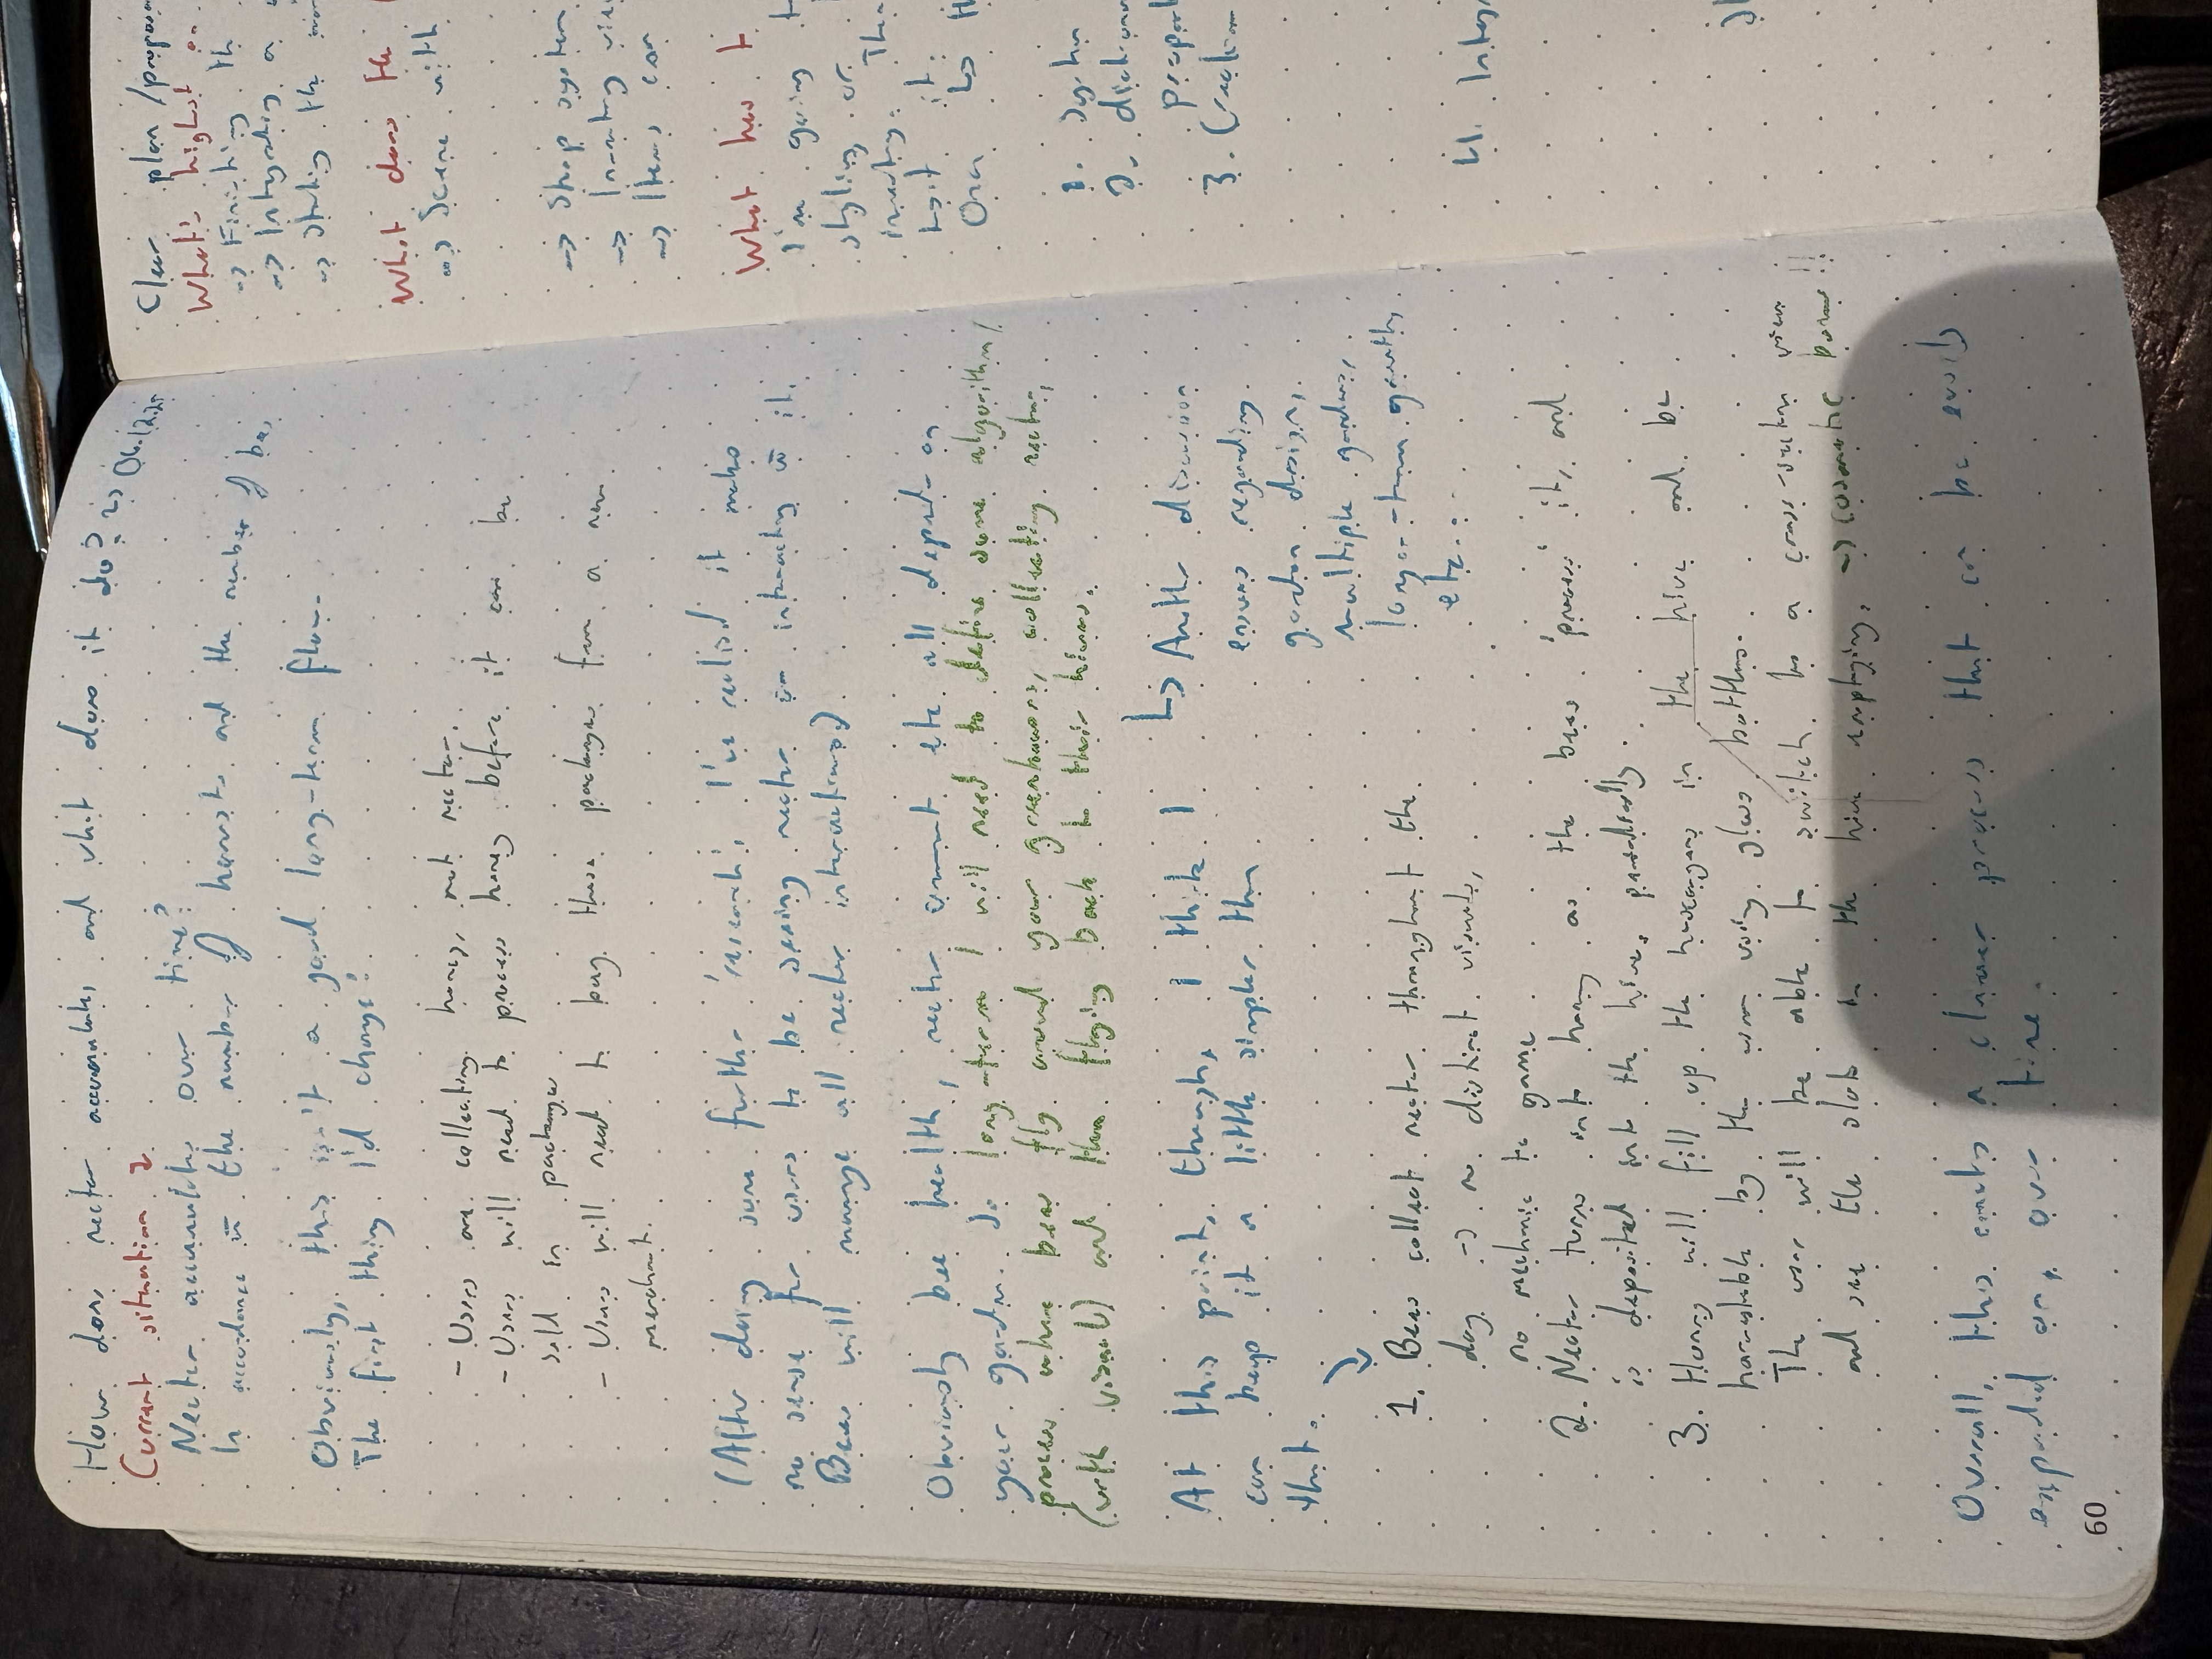 How does nectar accumulate, and what does it do? => Obsidian
Current situation?
Nectar accumulates over time?
In accordance w the number of harvests and the number of bees
Obviously, this isn't a good long-term plan.
The first thing I'd change:
- Users are collecting honey, not nectar.
- Users will need to process honey before it can be
sold in packages
- Users will need to buy these packages from a new
merchant.
(After doing some further 'research', I've realised it makes
no sense for users to be seeing nectar or interacting w it.
Bees will manage all nectar interactions)
Obviously bee health, nectar amount etc all depends on
your garden. So long-term I will need to define some algorithm/
process where bees fly around your greenhouses, collecting nectar,
(with visuals) and then flying back to their hives.
At this point, though, I think I
can keep it a little simpler than
that.
↳ Another discussion
ensues regarding
garden design,
multiple gardens,
long-term growth,
etc...
1. Bees collect nectar throughout the
day → no distinct visuals,
no mechanic to game
2. Nectar turns into honey as the bees 'process' it, and
is deposited into the hive, passively.
3. Honey will fill up the honeycombs in the hive and be
harvestable by the user using glass bottles.
The user will be able to switch to a cross-section view
and see the slots in the hive emptying. → Cosmetic bonus!!
Overall, this creates a cleaner process that can be easily
expanded on, over time.
60
Clear plan/purpose
What's highest on
=> Finishing th
=> Integrating a
=> Stating the
What does the
=> Scene with
=> Shop system
=> Inventory view
=> Items, can
What has t
I'm going t
styling, or
inventory. The
test it:
Once
3. Creation
4. Integ